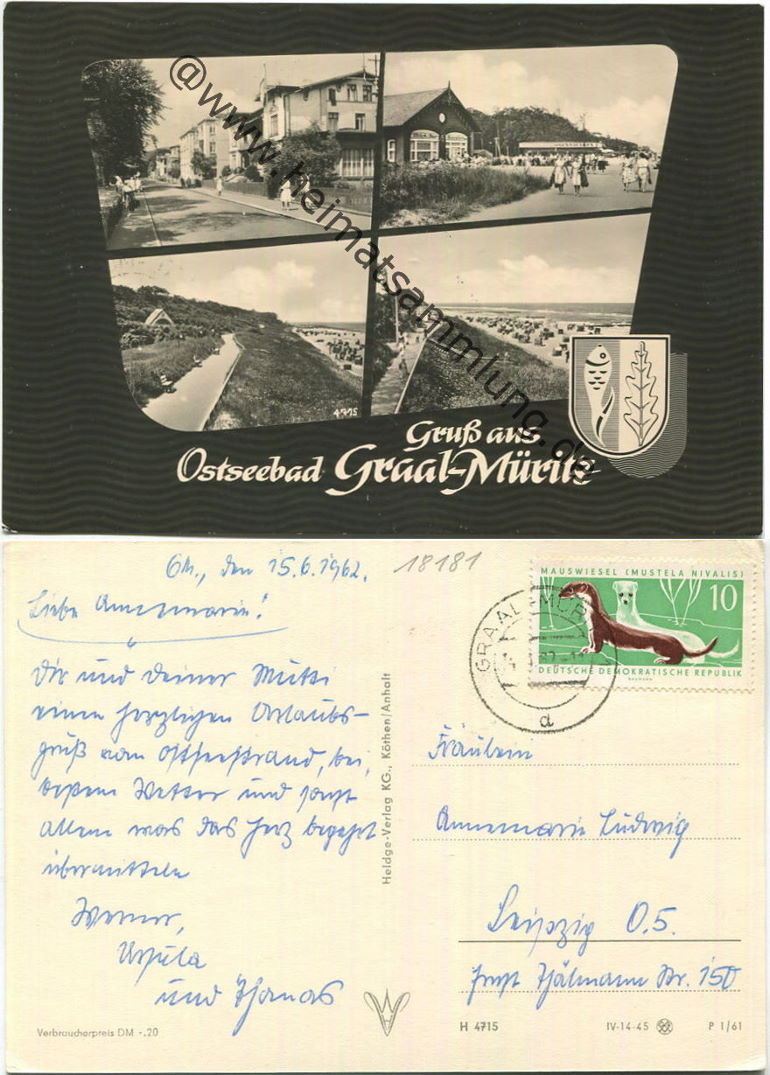 @www.heimatsammlung.de
4715
Gruß aus
Ostseebad Graal-Müritz
GM., den 15.6.1962.
18181
Liebe Annemarie!
Dir und deiner Mutti
einen herzlichen Urlaubs-
gruß vom Ostseestrand, bei
bestem Wetter und sonst
allem was das Herz begehrt
übermitteln
Werner,
Ursula
und Thomas
Verbraucherpreis DM -.20
Heldge-Verlag KG., Köthen/Anhalt
MAUSWIESEL (MUSTELA NIVALIS)
10
DEUTSCHE DEMOKRATISCHE REPUBLIK
GRAAL-MÜRITZ
d
Fräulein
Annemarie Ludwig
Leipzig O.5.
Ernst Thälmann Str. 150
H 4715
IV-14-45
P 1/61